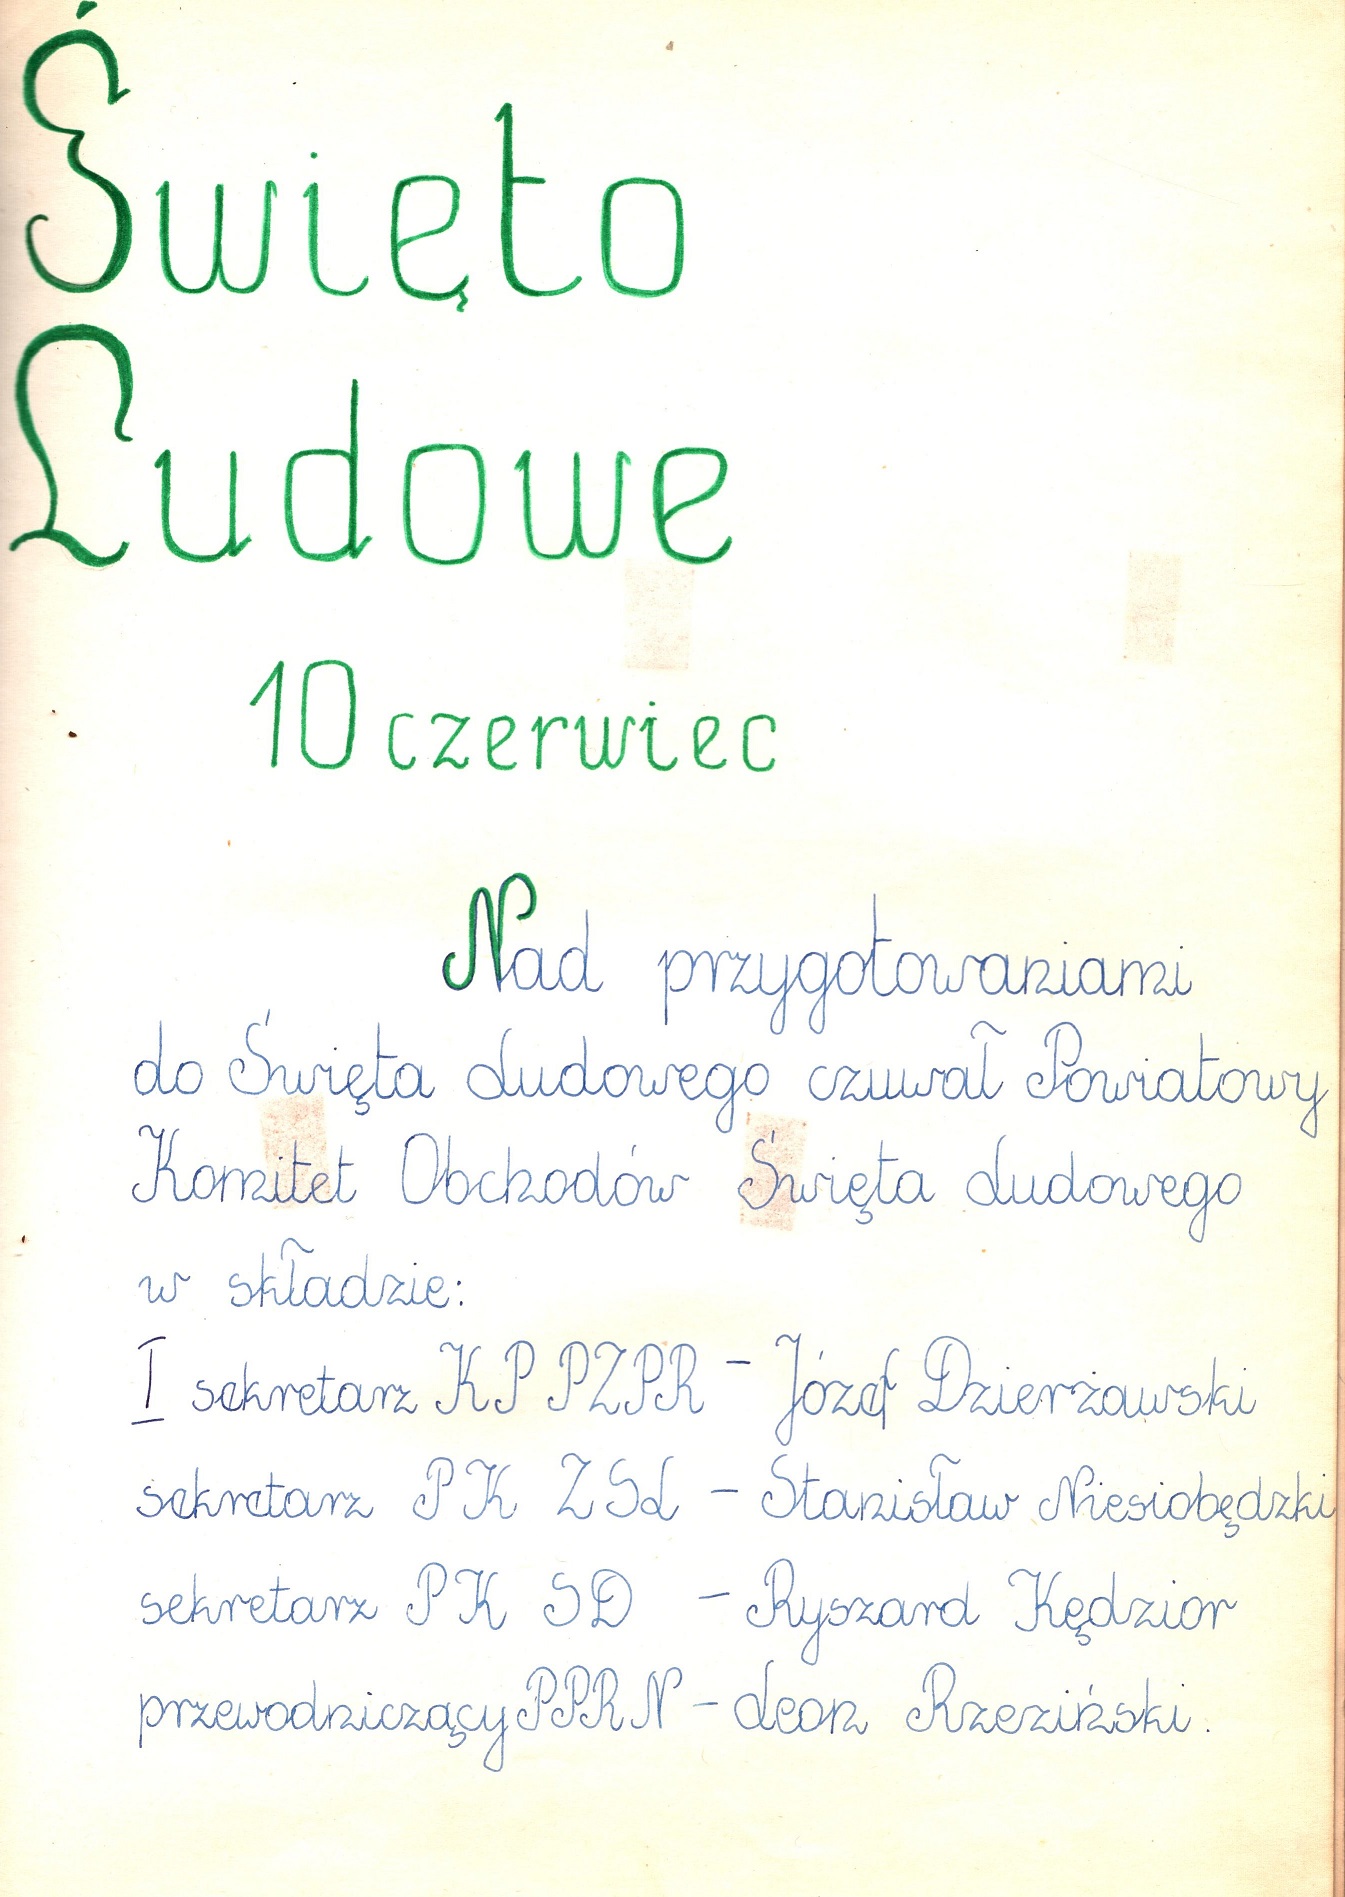 Święto
Ludowe
10 czerwiec
Nad przygotowaniami
do Święta Ludowego czuwał Powiatowy
Komitet Obchodów Święta Ludowego
w składzie:
I sekretarz KP PZPR - Józef Dzierżawski
sekretarz PK ZSL - Stanisław Niesiobędzki
sekretarz PK SD - Ryszard Kędzior
przewodniczący PPRN - Leon Rzeziński.